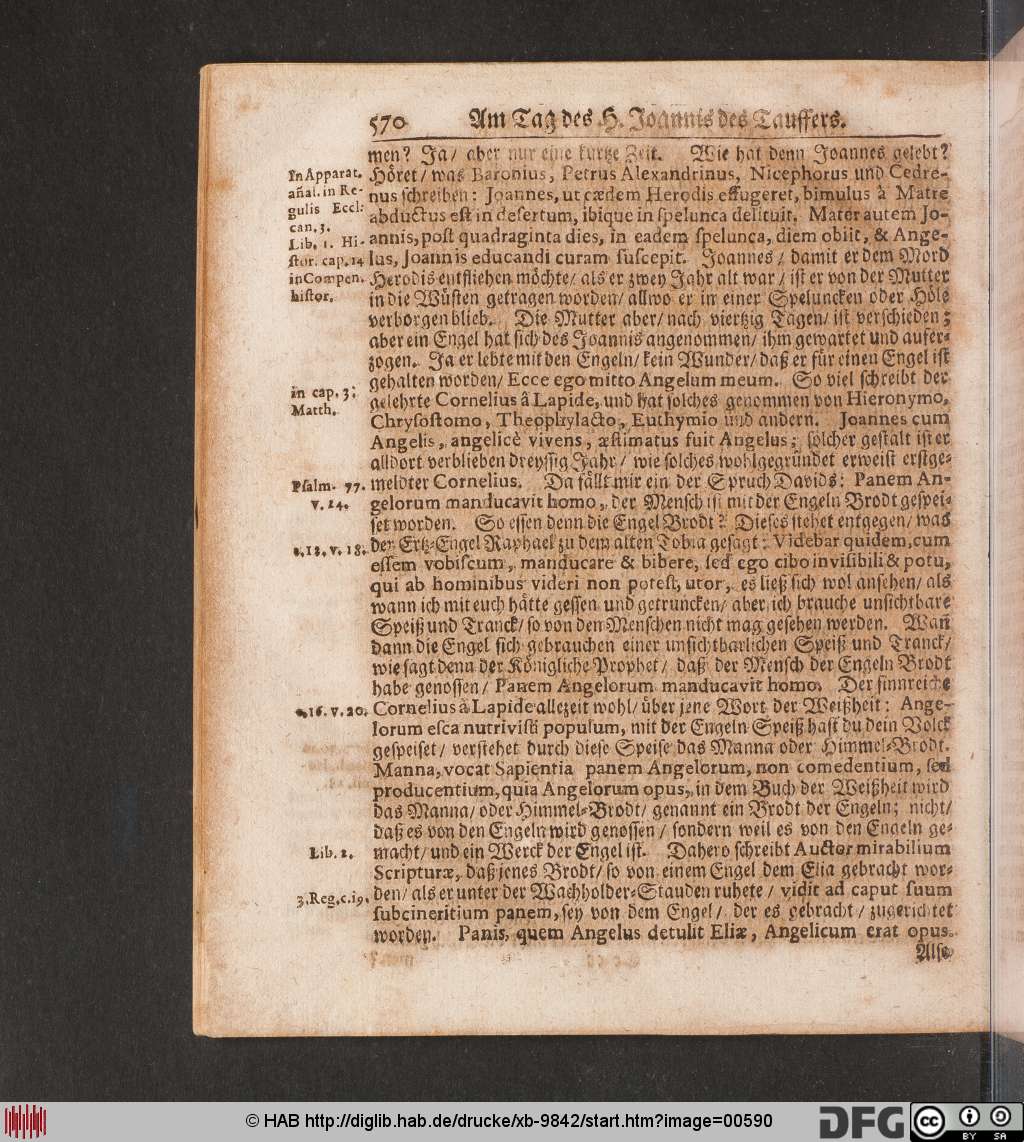 570 Am Tag des H. Joannis des Tauffers.
men? Ja/ aber nur eine kurtze Zeit. Wie hat denn Joannes gelebt?
Höret/ was Baronius, Petrus Alexandrinus, Nicephorus und Cedre-
nus schreiben: Joannes, ut cædem Herodis effugeret, bimulus à Matre
abductus est in desertum, ibique in spelunca delituit. Mater autem Jo-
annis, post quadraginta dies, in eadem spelunca, diem obiit, & Ange-
lus, Joannis educandi curam suscepit. Joannes/ damit er dem Mord
Herodis entfliehen möchte/ als er zwey Jahr alt war/ ist er von der Mutter
in die Wüsten getragen worden/ allwo er in einer Speluncken oder Höle
verborgen blieb. Die Mutter aber/ nach viertzig Tagen/ ist verschieden;
aber ein Engel hat sich des Joannis angenommen/ ihm gewartet und aufer-
zogen. Ja er lebte mit den Engeln/ kein Wunder/ daß er für einen Engel ist
gehalten worden/ Ecce ego mitto Angelum meum. So viel schreibt der
gelehrte Cornelius â Lapide, und hat solches genommen von Hieronymo,
Chrysostomo, Theophylacto, Euthymio und andern. Joannes cum
Angelis, angelicè vivens, æstimatus fuit Angelus; solcher gestalt ist er
alldort verblieben dreyssig Jahr/ wie solches wohlgegründet erweist erstge-
meldter Cornelius. Da fällt mir ein der Spruch Davids: Panem An-
gelorum manducavit homo, der Mensch ist mit der Engeln Brodt gespei-
set worden. So essen denn die Engel Brodt? Dieses stehet entgegen/ was
der Ertz-Engel Raphael zu dem alten Tobia gesagt: Videbar quidem, cum
essem vobiscum, manducare & bibere, sed ego cibo invisibili & potu,
qui ab hominibus videri non potest, utor, es ließ sich wol ansehen/ als
wann ich mit euch hätte gessen und getruncken/ aber ich brauche unsichtbare
Speiß und Tranck/ so von den Menschen nicht mag gesehen werden. Wañ
dann die Engel sich gebrauchen einer unsichtbarlichen Speiß und Tranck/
wie sagt denn der Königliche Prophet/ daß der Mensch der Engeln Brodt
habe genossen/ Panem Angelorum manducavit homo. Der sinnreiche
Cornelius à Lapide allezeit wohl/ über jene Wort der Weißheit: Ange-
lorum esca nutrivisti populum, mit der Engeln Speiß hast du dein Volck
gespeiset/ verstehet durch diese Speise das Manna oder Himmel-Brodt.
Manna, vocat Sapientia panem Angelorum, non comedentium, sed
producentium, quia Angelorum opus, in dem Buch der Weißheit wird
das Manna/ oder Himmel-Brodt/ genannt ein Brodt der Engeln; nicht/
daß es von den Engeln wird genossen/ sondern weil es von den Engeln ge-
macht/ und ein Werck der Engel ist. Dahero schreibt Auctor mirabilium
Scripturæ, daß jenes Brodt/ so von einem Engel dem Elia gebracht wor-
den/ als er unter der Wachholder-Stauden ruhete/ vidit ad caput suum
subcineritium panem, sey von dem Engel/ der es gebracht/ zugerichtet
worden. Panis, quem Angelus detulit Eliæ, Angelicum erat opus.
Also
In Apparat.
añal. in Re-
gulis Eccl:
can. 3.
Lib. 1. Hi-
stor. cap. 14
in Compen.
histor.
in cap. 3:
Matth.
Psalm. 77.
v. 24.
c. 12. v. 18.
c. 16. v. 20.
Lib. 2.
3. Reg. c. 19.
© HAB http://diglib.hab.de/drucke/xb-9842/start.htm?image=00590
DFG
cc
BY SA